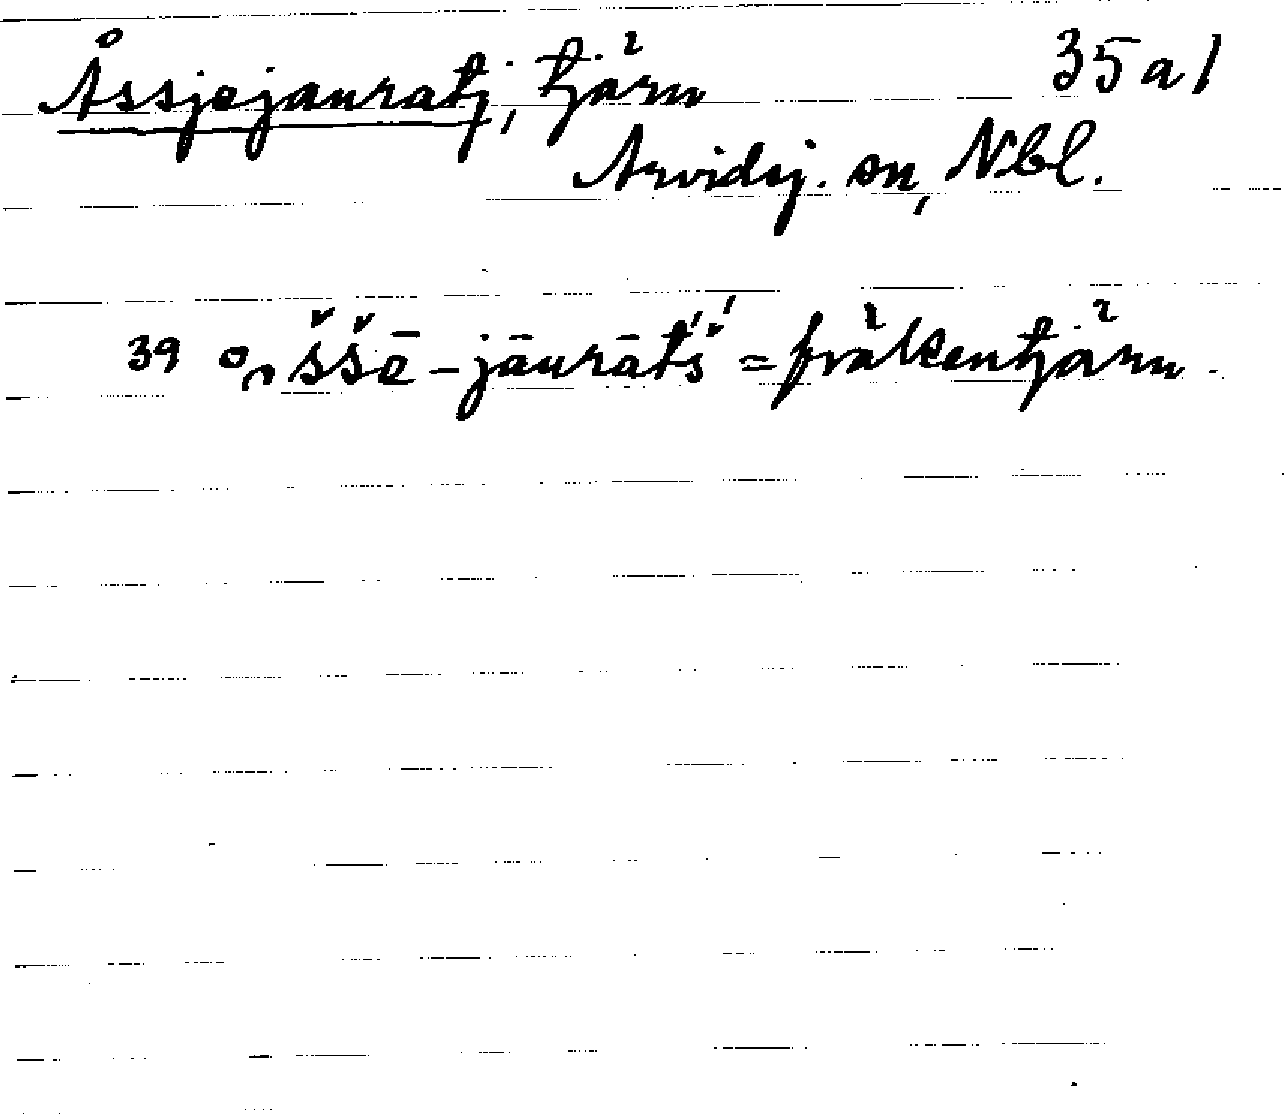 Åssjejauratj, tjärn 35 a 1
Arvidsj. sn, Nbl.
39 o̱ššē-jāurāt́š́ = fräkentjärn.